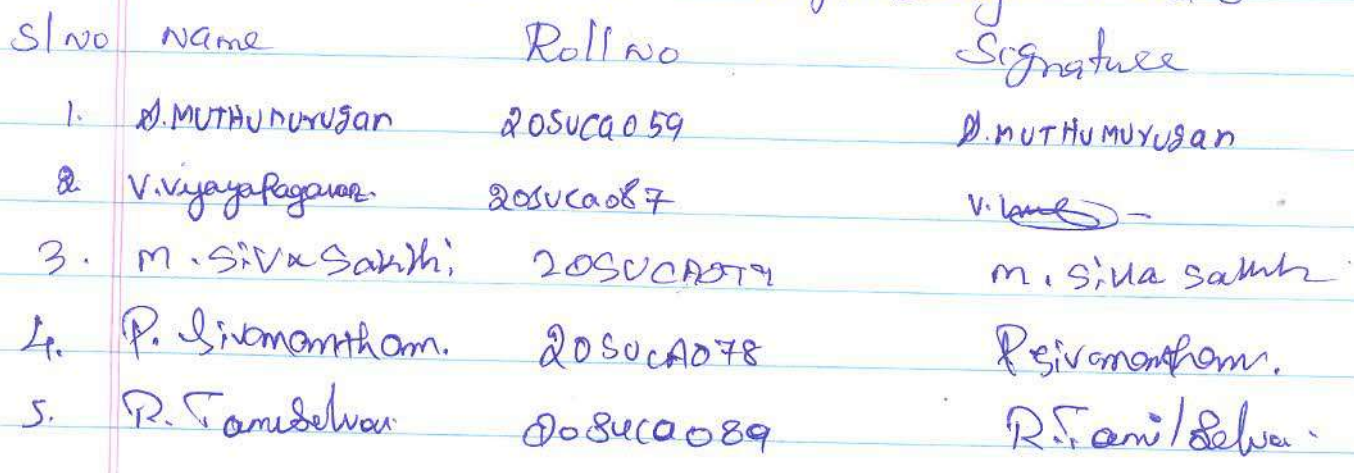 Sl No Name Roll No Signature
1. D.MUTHUMURUGAN 20SUCA059 D.MUTHUMURUGAN
2. V. 20SUCA087 V.
3. M. Siva Sakthi 20SUCA079 M. Siva Sakthi
4. P. Sivanantham. 20SUCA078 P Sivanantham.
5. R. TamilSelvan 20SUCA089 R. Tamil Selva.